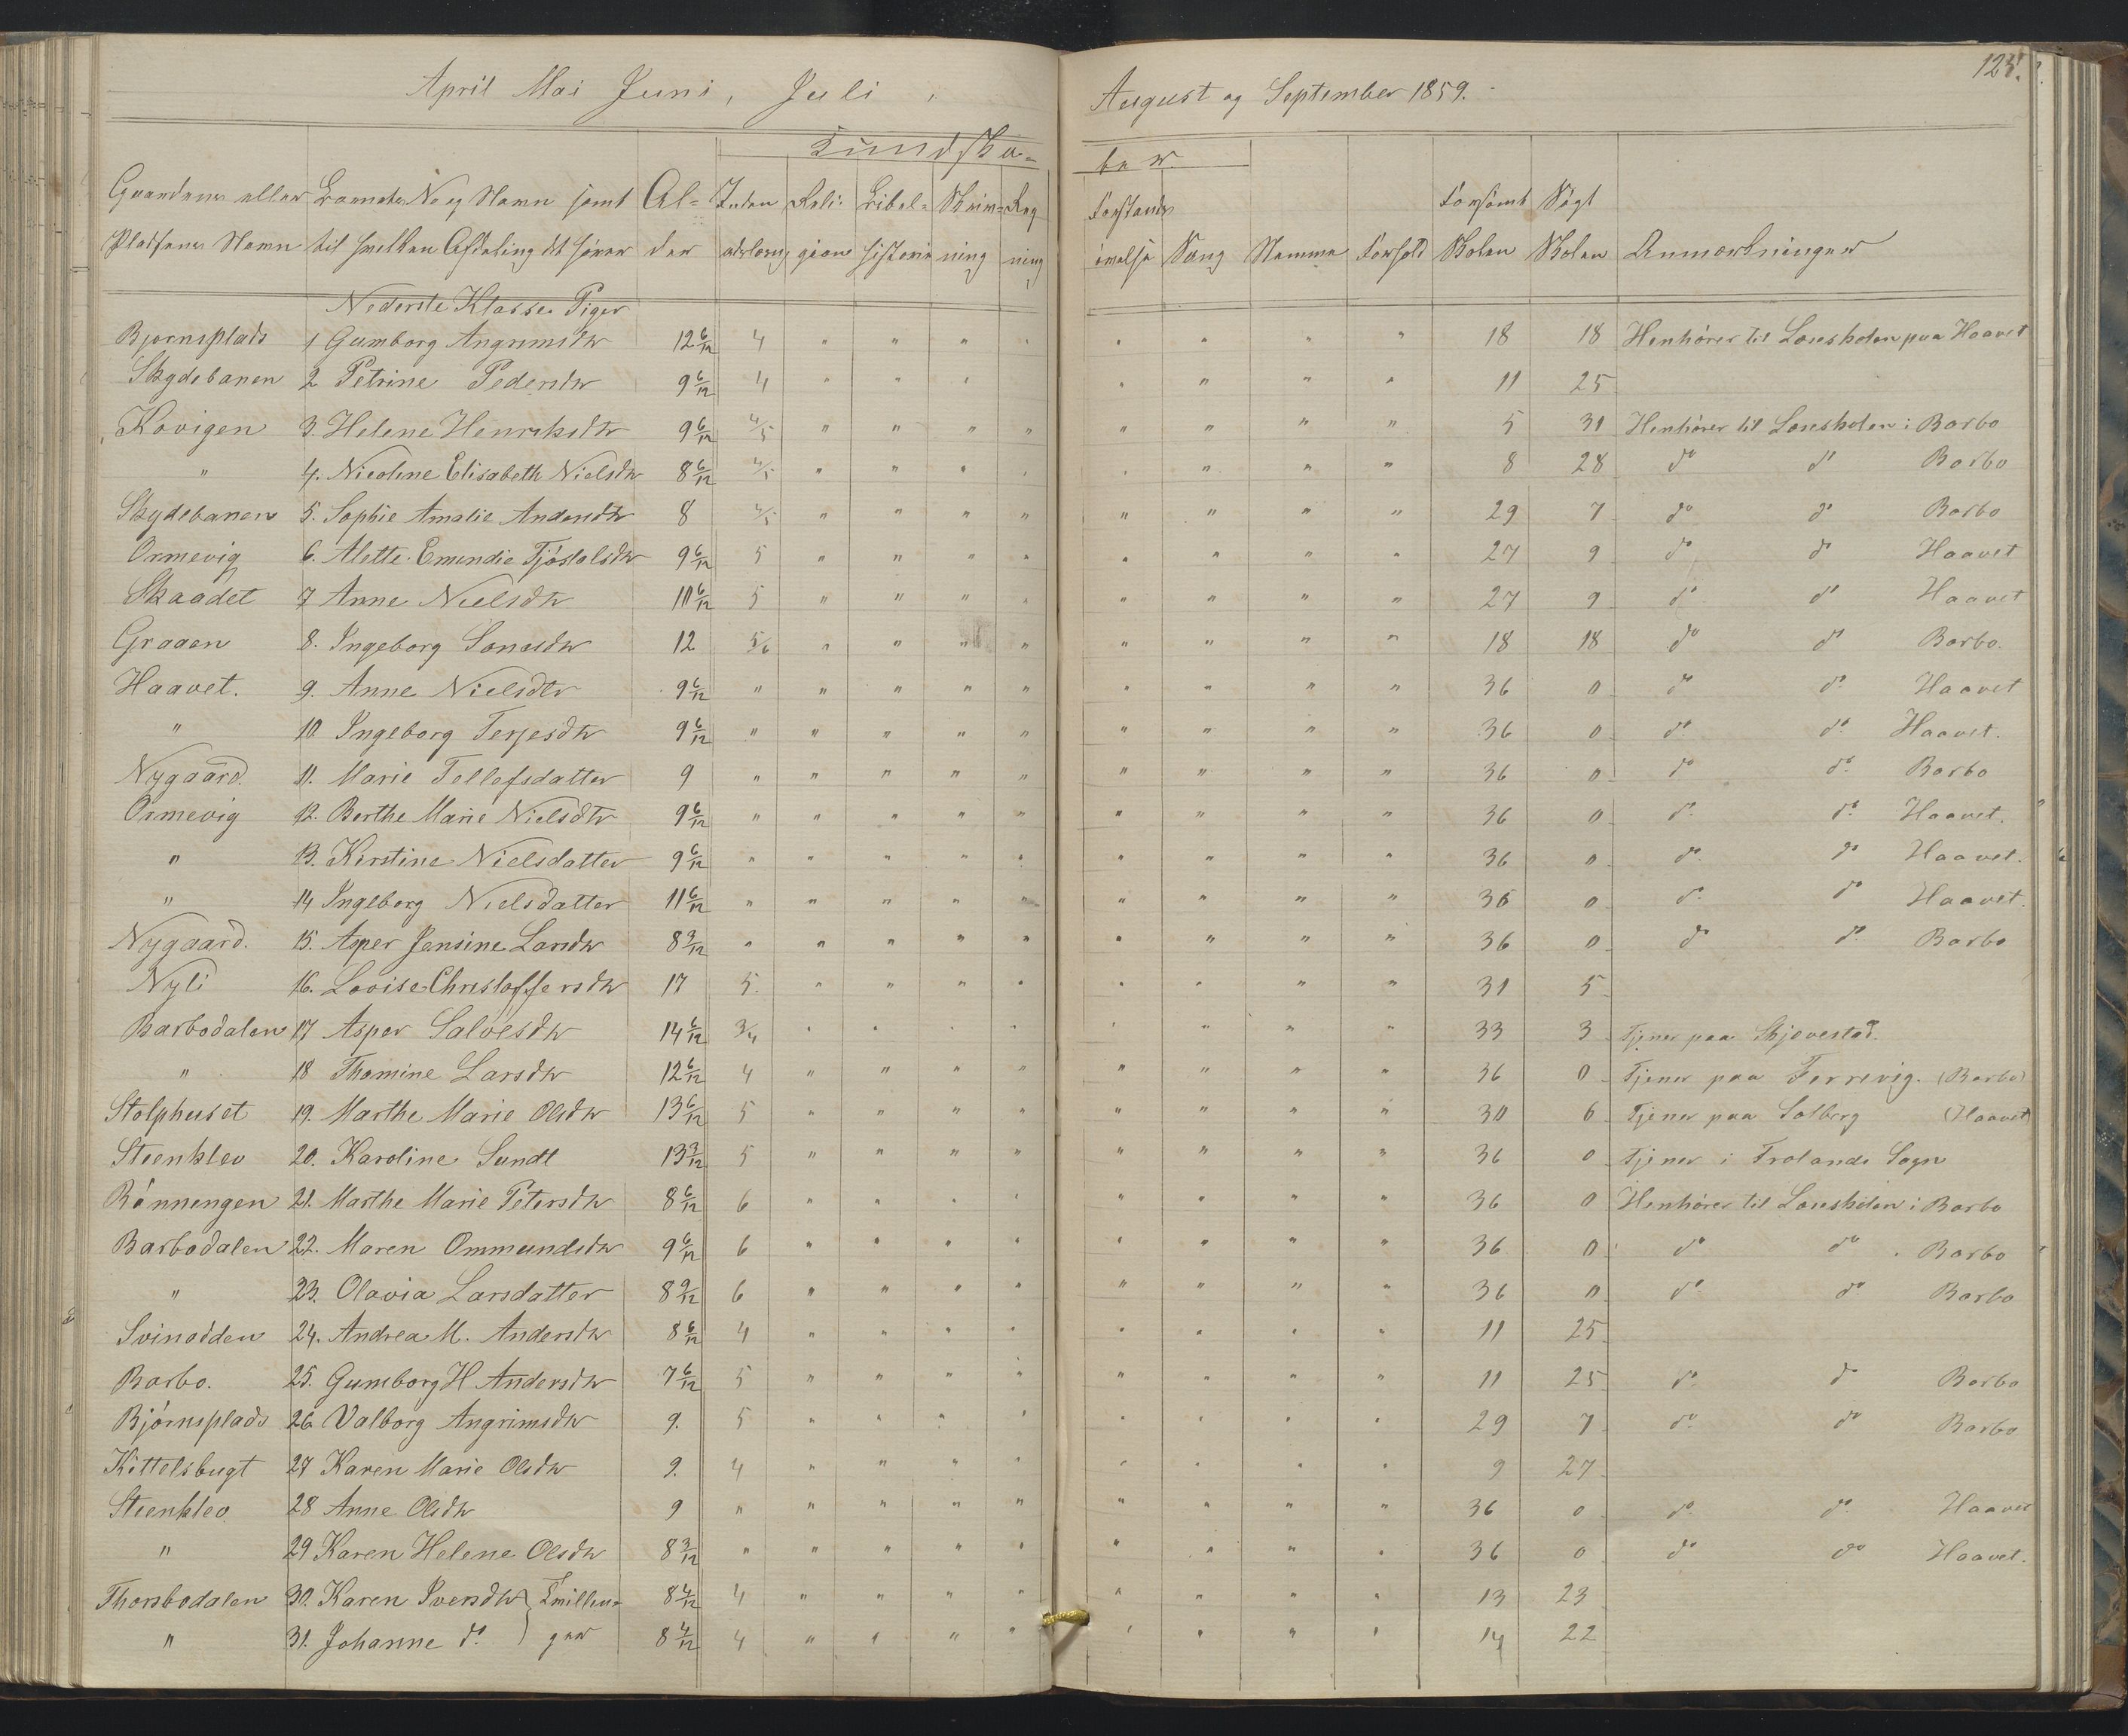 April Mai Juni, Juli,
August og September 1859.
125.
Kundska-
ber
Gaardenes eller Barnets No og Navn samt Al- Inden Reli- Bibel- Skriv- Reg
Forstands Forsømt Søgt
Pladsens Navn til hvilken Afdeling det hører der adslæsng gion historie ning ning
øvelse Sang Nemme Forhold Skolen Skolen Anmærkninger
Nederste Klasse Piger
Bjørnsplads 1 Gumborg Angrimsdtr 12 6/12 4 " " " " " " " " 18 18 Henhører til Læsskolen paa Haavet
Skydebanen 2 Petrine Pedersdtr 9 6/12 4 " " " " " " " 11 25
Kovigen 3. Helene Henriksdtr 9 6/12 4/5 " " " " " " " " 5 31 Henhører til Læsskolen i Barbo
" 4. Nicoline Elisabeth Nielsdtr 8 6/12 4/5 " " " " " " " " 8 28 do do Barbo
Skydebanen 5. Sophie Amalie Andersdtr 8 4/5 " " " " " " " " 29 7 do do Barbo
Ormevig 6. Alette Emundie Tjöstolsdtr 9 6/12 5 " " " " " " " " 27 9 do do Haavet
Skaadet 7 Anne Nielsdtr 11 6/12 5 " " " " " " " " 27 9 do do Haavet
Graaen 8. Ingeborg Lonasdtr 12 5/6 " " " " " " " " 18 18 do do Barbo.
Haavet. 9. Anne Nielsdtr 9 6/12 " " " " " " " " " 36 0 do do Haavet
" 10 Ingeborg Terjesdtr 9 6/12 " " " " " " " " " 36 0 do do Haavet.
Nygaard. 11. Marie Tellefsdatter 9 " " " " " " " " " 36 0 do do Barbo
Ormevig 12. Berthe Marie Nielsdtr 9 6/12 " " " " " " " " " 36 0 do do Haavet.
" 13. Kirstine Nielsdatter 9 6/12 " " " " " " " " " 36 0 do do Haavet.
" 14 Ingeborg Nielsdatter 11 6/12 " " " " " " " " " 36 0 do do Haavet.
Nygaard. 15. Asper Jensine Larsdtr 8 3/12 " " " " " " " " " 36 0 do do Barbo
Nyli 16. Lovise Christoffersdtr 17 5. " " " " " " " " 31 5
Barbodalen 17 Asper Salvesdtr 14 6/12 3/4 " " " " " " " " 33 3 Tjener paa Skjevestad.
" 18 Thomine Larsdtr 12 6/12 4 " " " " " " " " 36 0 Tjener paa Torrevig. (Barbo)
Stolphuset 19. Marthe Marie Olsdtr 13 6/12 5 " " " " " " " " 30 6 Tjener paa Solberg (Haavet)
Steenklev 20. Karoline Sundt 13 3/12 5 " " " " " " " " 36 0 Tjener i Frolands Sogn
Rönnengen 21. Marthe Marie Petersdtr 8 6/12 6 " " " " " " " " 36 0 Henhører til Læsskolen i Barbo
Barbodalen 22. Maren Ommundsdtr 9 6/12 6 " " " " " " " " 36 0 do do Barbo
" 23. Olavia Larsdatter 8 9/12 6 " " " " " " " " 36 0 do do Barbo
Svinodden 24. Andrea M. Andersdtr 8 6/12 4 " " " " " " " " 11 25
Barbo. 25. Gumborg H Andersdtr 7 6/12 5 " " " " " " " " 11 25 do do Barbo
Bjørnsplads 26 Valborg Angrimsdtr 9. 5 " " " " " " " " 29 7 do do Barbo
Kittelsbugt 27 Karen Marie Olsdtr 9. 4 " " " " " " " " 9 27
Steenklev 28 Anne Olsdtr 9 " " " " " " " " " 36 0 do do Haavet
" 29 Karen Helene Olsdtr 8 3/12 " " " " " " " " " 36 0 do do Haavet.
Thorsbodalen 30. Karen Iversdtr } Tvillin- 8 4/12 4 " " " " " " " " 13 23
" 31. Johanne do } ger 8 4/12 4 " " " " " " " " 14 22